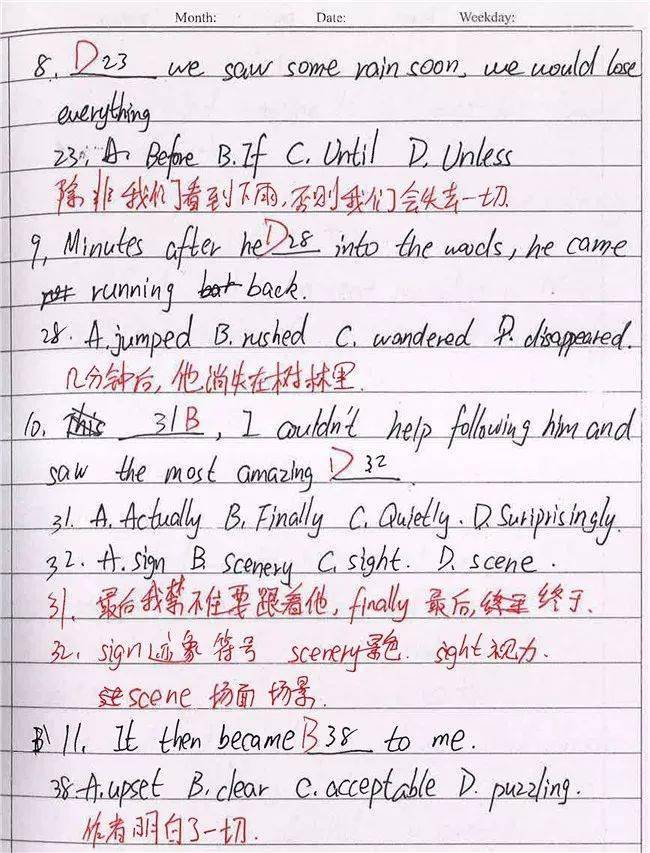 Month: Date: Weekday:
8. D 23 we saw some rain soon, we would lose
everything
23. A. Before B. If C. Until D. Unless
除非我们看到下雨,否则我们会失去一切.
9. Minutes after he D 28 into the woods, he came
running back.
28. A. jumped B. rushed C. wandered D. disappeared.
几分钟后,他消失在树林里.
10. This 31 B, I couldn't help following him and
saw the most amazing D 32
31. A. Actually B. Finally C. Quietly. D. Suriprisingly.
32. A. sign B. scenery C. sight. D. scene.
31. 最后我禁不住要跟着他, finally 最后, 终于.
32. sign 迹象 符号 scenery 景色. sight 视力.
scene 场面 场景.
11. It then became B 38 to me.
38. A. upset B. clear C. acceptable D. puzzling.
作者明白了一切.